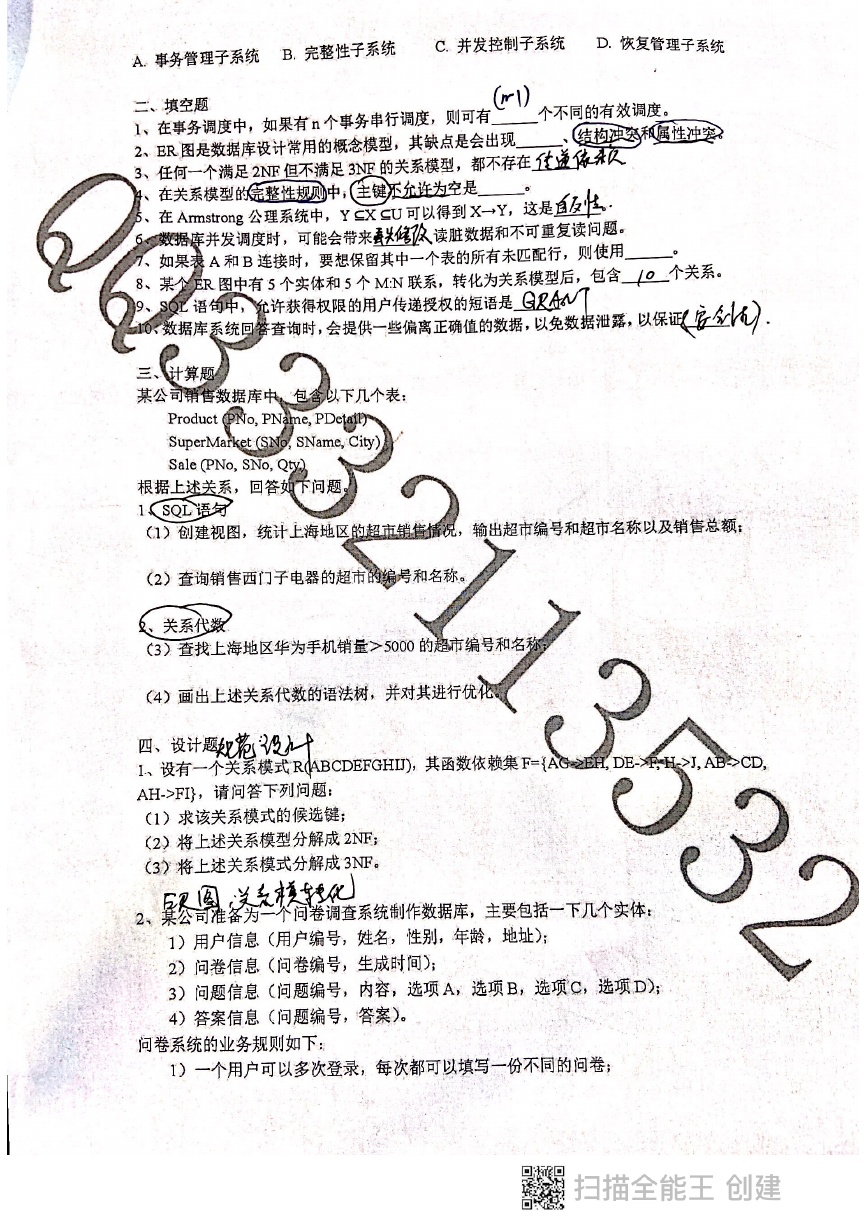 A. 事务管理子系统 B. 完整性子系统 C. 并发控制子系统 D. 恢复管理子系统
二、填空题
(n-1)
1、在事务调度中，如果有 n 个事务串行调度，则可有_____个不同的有效调度。
2、ER 图是数据库设计常用的概念模型，其缺点是会出现_____、结构冲突和属性冲突。
3、任何一个满足 2NF 但不满足 3NF 的关系模型，都不存在 传递依赖
4、在关系模型的完整性规则中，主键不允许为空是_____。
5、在 Armstrong 公理系统中，Y⊆X⊆U 可以得到 X→Y，这是 自反性。
6、数据库并发调度时，可能会带来丢失修改 读脏数据和不可重复读问题。
7、如果表 A 和 B 连接时，要想保留其中一个表的所有未匹配行，则使用_____。
8、某个 ER 图中有 5 个实体和 5 个 M:N 联系，转化为关系模型后，包含 10 个关系。
9、SQL 语句中，允许获得权限的用户传递授权的短语是 GRANT
10、数据库系统回答查询时，会提供一些偏离正确值的数据，以免数据泄露，以保证(安全性).
三、计算题
某公司销售数据库中，包含以下几个表：
Product (PNo, PName, PDetail)
SuperMarket (SNo, SName, City)
Sale (PNo, SNo, Qty)
根据上述关系，回答如下问题。
1、SQL 语句
（1）创建视图，统计上海地区的超市销售情况，输出超市编号和超市名称以及销售总额；
（2）查询销售西门子电器的超市的编号和名称。
2、关系代数
（3）查找上海地区华为手机销量＞5000 的超市编号和名称；
（4）画出上述关系代数的语法树，并对其进行优化。
四、设计题 规范设计
1、设有一个关系模式 R(ABCDEFGHIJ)，其函数依赖集 F={AG->EH, DE->F, H->J, AB->CD,
AH->FI}，请问答下列问题：
（1）求该关系模式的候选键；
（2）将上述关系模型分解成 2NF；
（3）将上述关系模式分解成 3NF。
ER图
2、某公司准备为一个问卷调查系统制作数据库，主要包括一下几个实体：
1）用户信息（用户编号，姓名，性别，年龄，地址）；
2）问卷信息（问卷编号，生成时间）；
3）问题信息（问题编号，内容，选项 A，选项 B，选项 C，选项 D）；
4）答案信息（问题编号，答案）。
问卷系统的业务规则如下：
1）一个用户可以多次登录，每次都可以填写一份不同的问卷；
QQ3332113532
扫描全能王 创建